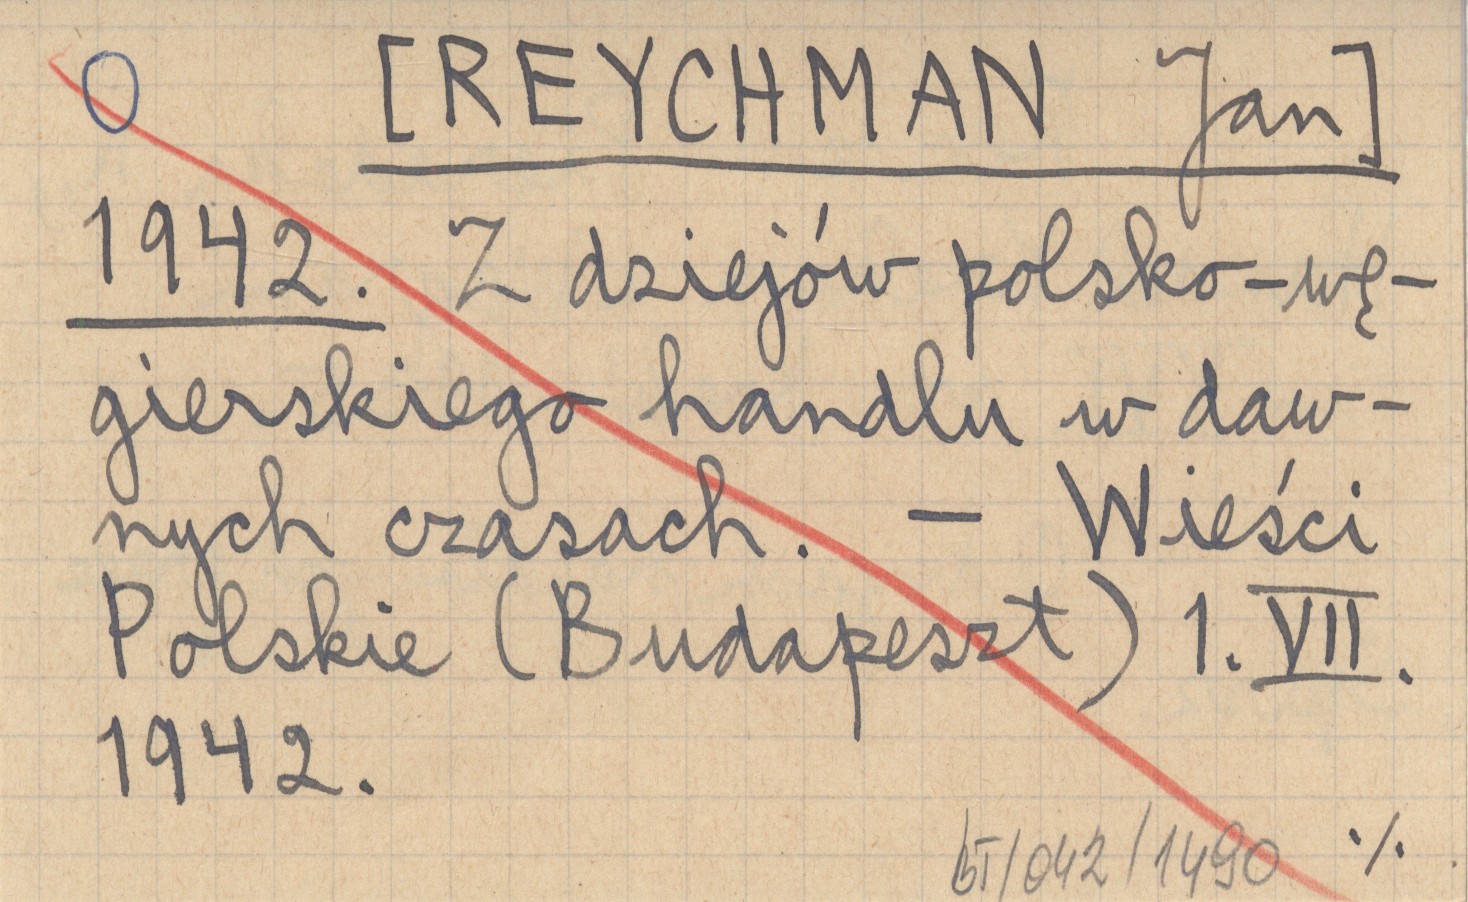 O [REYCHMAN Jan]
1942. Z dziejów polsko-wę-
gierskiego handlu w daw-
nych czasach. — Wieści
Polskie (Budapeszt) 1. VII.
1942.
BT/042/1490 ·/.